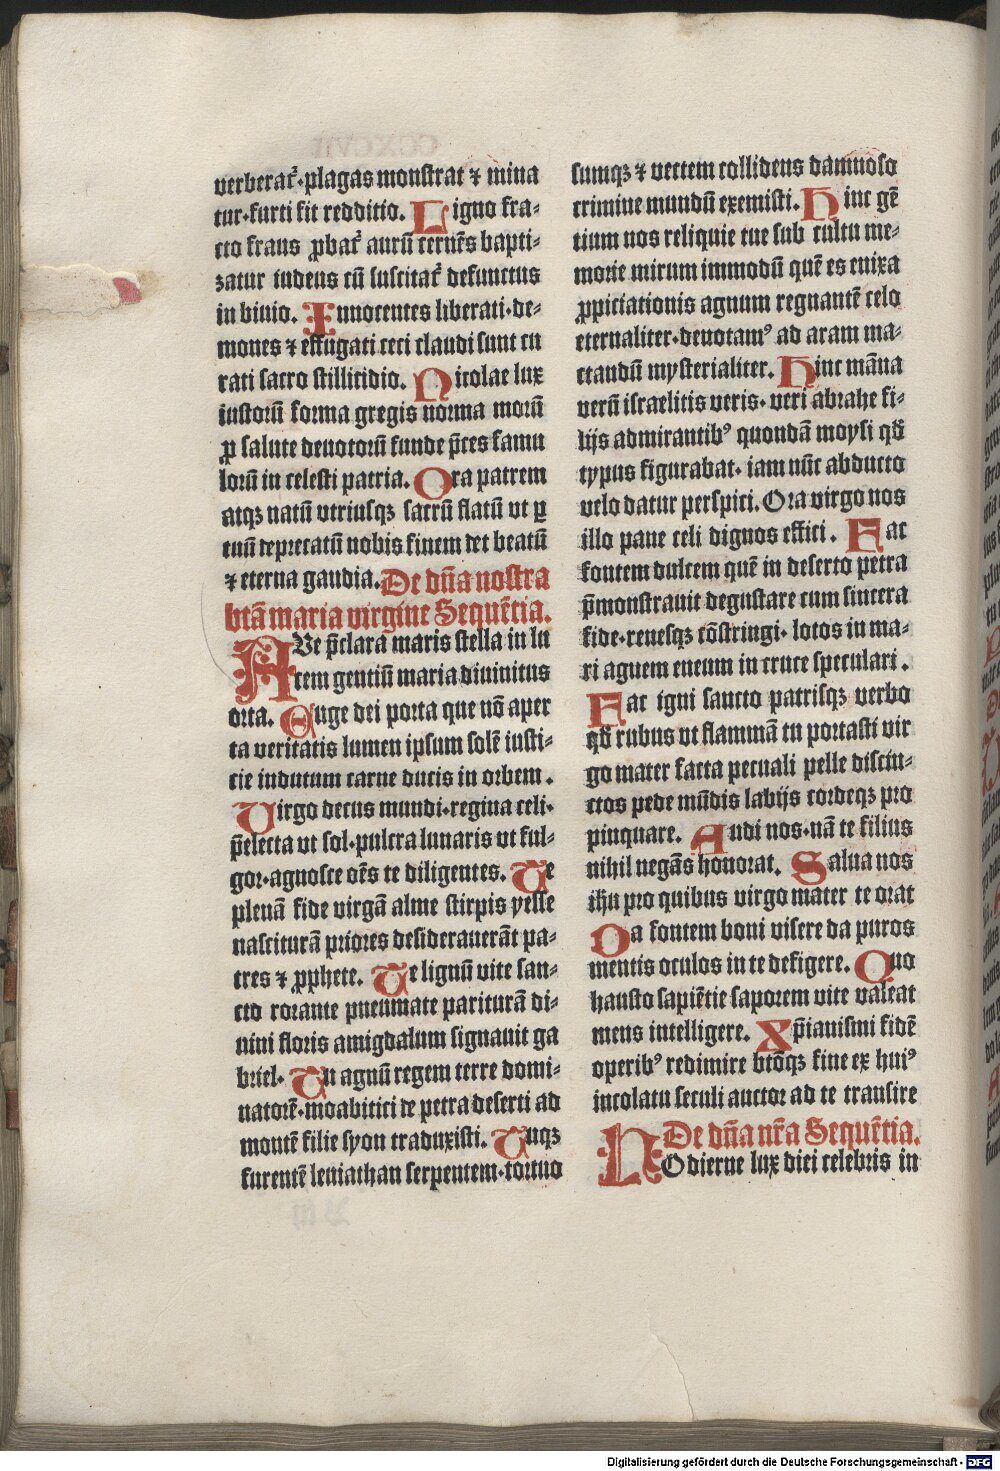 verberat᷑·plagas monstrat ⁊ mina
tur·furti fit redditio. Ligno fra-
cto fraus ꝓbat᷑ aurū cernēs bapti-
zatur iudeus cū suscitat᷑ defunctus
in biuio. Innocentes liberati·de-
mones ⁊ effugati ceci claudi sunt cu
rati sacro stillitidio. Nicolae lux
iustorū forma gregis norma morū
ꝓ salute deuotorū funde p̄ces famu
lorū in celesti patria. Ora patrem
atqꝫ natū vtriusqꝫ sacrū flatū vt ꝑ
tuū deprecatū nobis finem det beatū
⁊ eterna gaudia. De dn̄a nostra
btā maria virgine Sequētia.
AVe p̄clara maris stella in lu
cem gentiū maria diuinitus
orta. Euge dei porta que nō aper
ta veritatis lumen ipsum solē iusti-
cie indutum carne ducis in orbem.
Virgo decus mundi·regina celi·
p̄electa vt sol·pulcra lunaris vt ful-
gor·agnosce oēs te diligentes. Te
plenā fide virgā alme stirpis yesse
nasciturā priores desiderauerāt pa-
tres ⁊ ꝓphete. Te lignū vite san-
cto rorante pneumate pariturā di-
uini floris amigdalum signauit ga
briel. Tu agnū regem terre domi-
natorē·moabitici de petra deserti ad
montē filie syon traduxisti. Tuqꝫ
furentē leuiathan serpentem·tortuo
sumqꝫ ⁊ vectem collidens damnoso
crimine mundū exemisti. Hinc gē
tium nos reliquie tue sub cultu me-
morie mirum immodū quē es enixa
ꝓpiciationis agnum regnantē celo
eternaliter·deuotamꝰ ad aram ma-
ctandū mysterialiter. Hinc māna
verū israelitis veris·veri abrahe fi-
lijs admirantibꝰ quondā moysi qd̄
typus figurabat·iam nūc abducto
velo datur perspici. Ora virgo nos
illo pane celi dignos effici. Fac
fontem dulcem quē in deserto petra
p̄monstrauit degustare cum sincera
fide·renesqꝫ cōstringi·lotos in ma-
ri aguem eneum in cruce speculari.
Fac igni sancto patrisqꝫ verbo
qd̄ rubus vt flammā tu portasti vir
go mater facta pecuali pelle discin-
ctos pede mūdis labijs cordeqꝫ pro
pinquare. Audi nos·nā te filius
nihil negās honorat. Salua nos
ihu pro quibus virgo mater te orat
Da fontem boni visere da puros
mentis oculos in te defigere. Quo
hausto sapiētie saporem vite valeat
mens intelligere. Xp̄ianismi fidē
operibꝰ redimire btōqꝫ fine ex huiꝰ
incolatu seculi auctor ad te transire
De dn̄a nr̄a Sequētia.
HOdierne lux diei celebris in
Digitalisierung gefördert durch die Deutsche Forschungsgemeinschaft - DFG